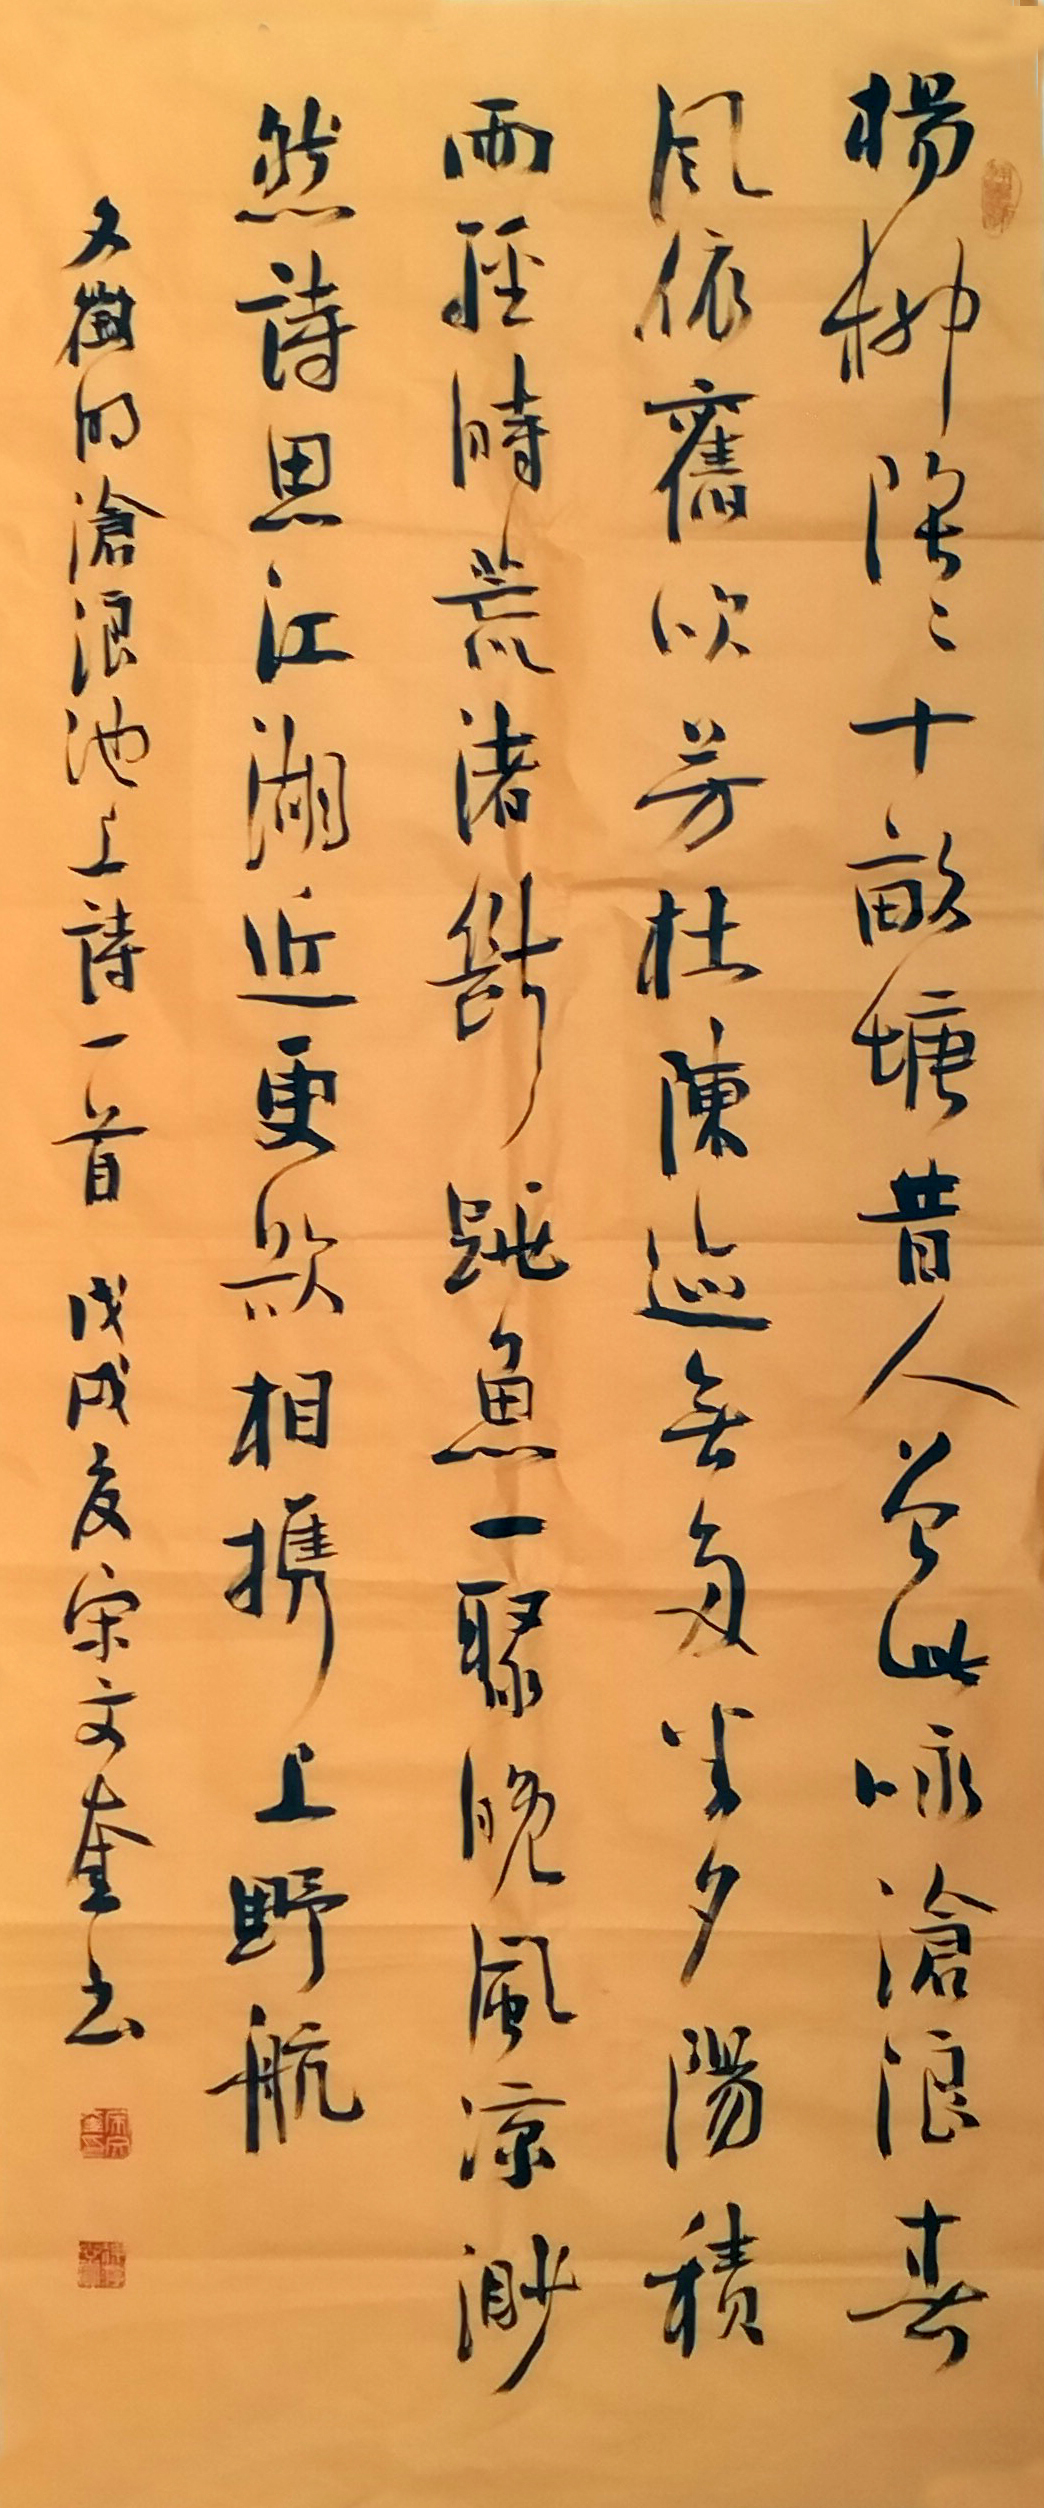 楊柳陰〻十畝塘昔人曾此咏滄浪春
风依舊吹芳杜陳迹無多半夕陽積
雨經時荒渚斷跳魚一聚晚風凉渺
然詩思江湖近更欲相携上野航
文徵明滄浪池上詩一首 戊戌夏宋文奎书